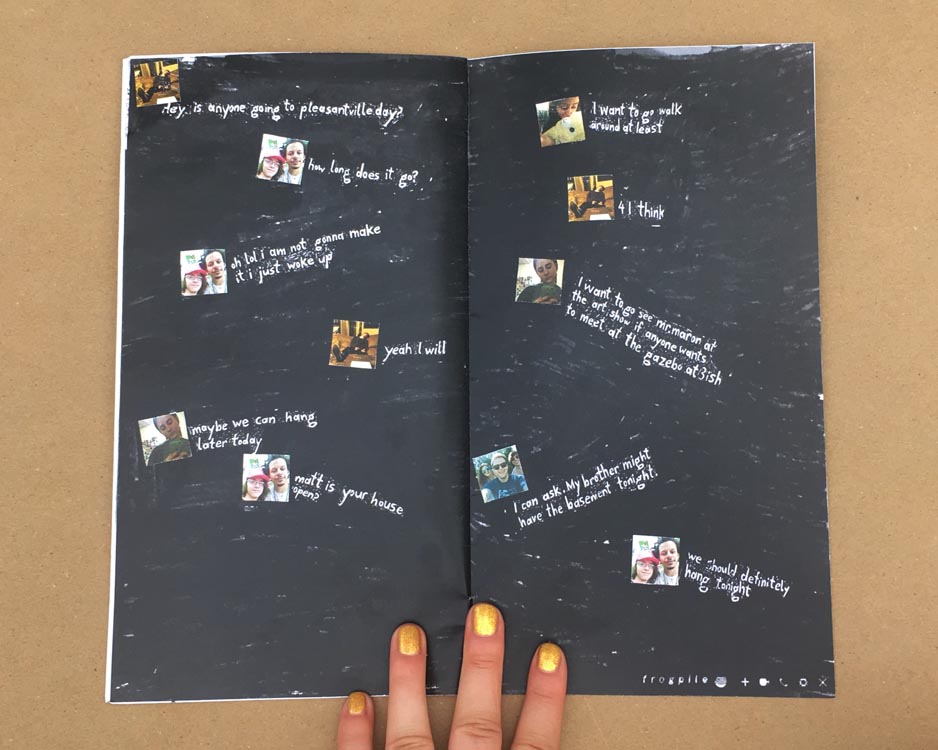 Hey, is anyone going to pleasantville day?
how long does it go?
oh lol i am not gonna make
it i just woke up
yeah I will
maybe we can hang
later today
matt is your house
open?
I want to go walk
around at least
4 I think
I want to go see mr. maron at
the art show if anyone wants
to meet at the gazebo at 3ish
I can ask. My brother might
have the basement tonight.
we should definitely
hang tonight
frogpile